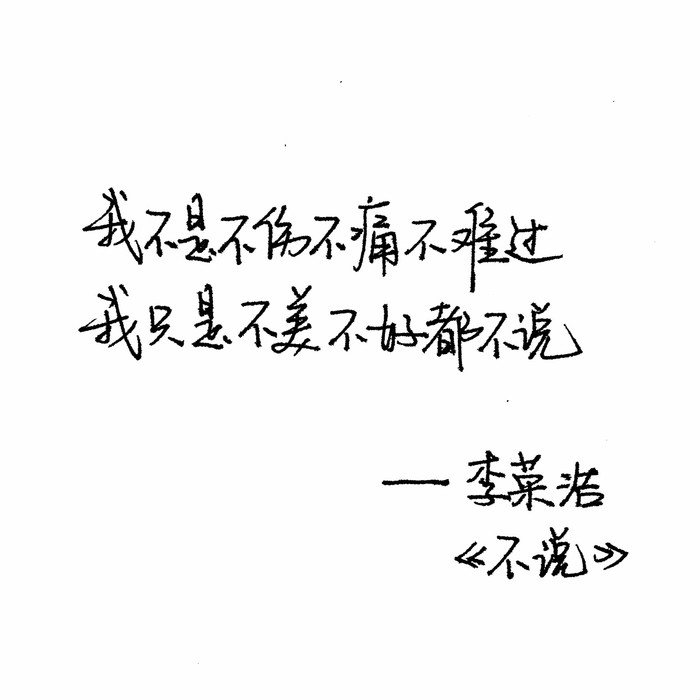 我不是不伤不痛不难过
我只是不美不好都不说
——李荣浩
《不说》